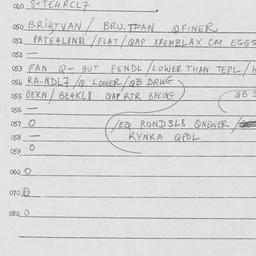 040 S+TE4RCL7
050 BRI4TVAN / BRU.TFAN QFINER
051 PATE4LBN81 /FLAT/ QAP XREMZLAX CM EGGS
052 —
053 FAN Q— BUT FENDL /LOWER THAN TEPL/
054 RA-NDL7 /Q LOWER/ QB DRWG
055 BEKN / BE4KL8 QAP RTR BAKING QB
056 —
057 O /EQ ROND3L8 QNEWER /
058 — RYNKA QPOL
059 O
060 O
070
080 O